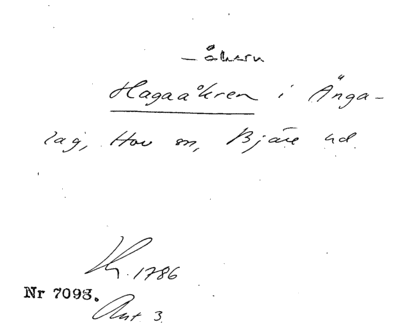 –åkern
Hagaåkren i Änga-
lag, Hov sn, Bjäre hd.
1786
Nr 7093.
Akt 3.